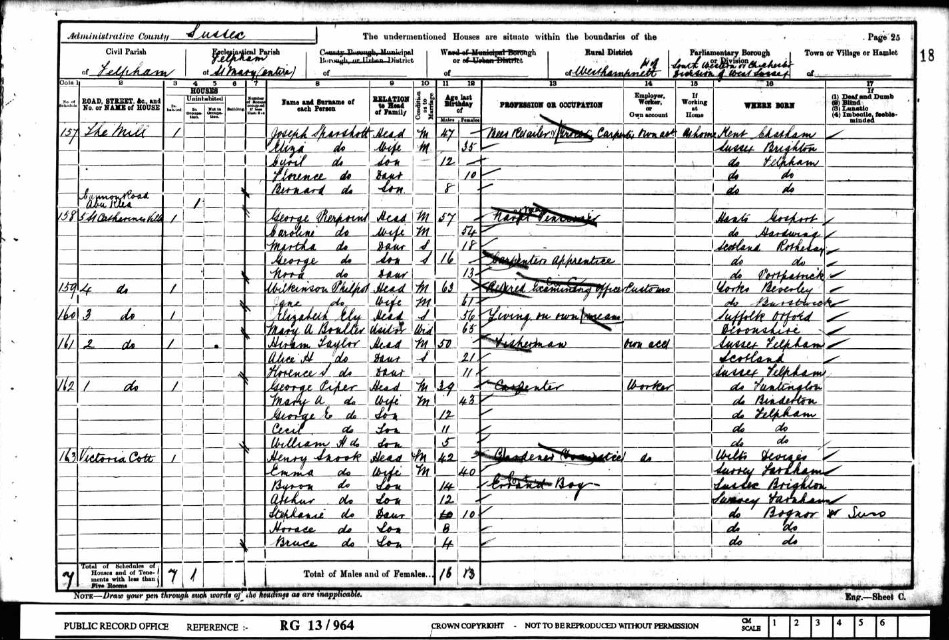 Administrative County Sussex The undermentioned Houses are situate within the boundaries of the Page 25
18
Civil Parish Ecclesiastical Parish County Borough, Municipal Borough, or Urban District Ward of Municipal Borough or of Urban District Rural District Parliamentary Borough or Division Town or Village or Hamlet
of Felpham of Felpham St Mary (entire) of of of Westhampnett of of
Cols 1 2 3 4 5 6 7 8 9 10 11 12 13 14 15 16 17
ROAD, STREET, &c., and No. or NAME of HOUSE HOUSES Uninhabited Name and Surname of each Person RELATION to Head of Family Condition as to Marriage Age last Birthday of Males Females PROFESSION OR OCCUPATION Employer, Worker, or Own account If Working at Home WHERE BORN (1) Deaf and Dumb (2) Blind (3) Lunatic (4) Imbecile, feeble-minded
157 The Mill 1 Joseph Sparshott Head M 47 Carpenter Own acct At home Kent Chatham
Eliza do Wife M 35 Sussex Brighton
Cyril do Son 12 do Felpham
Florence do Daur 10 do do
Bernard do Son 8 do do
Road
1
158 5 St Catharines 1 George Pierpoint Head M 57 Hants Gosport
Caroline do Wife M 54 do
Martha do Daur S 18 Scotland Rothesay
George do Son S 16 Carpenters Apprentice do do
Nora do Daur 13 do Portpatrick
159 4 do 1 Wilkinson Phelps Head M 63 Retired Examining Officer Customs Yorks Beverley
Jane do Wife M 61 do
160 3 do 1 Elizabeth Ely Head S 56 Living on own means Suffolk Orford
Mary A Visitor Wid 65 Devonshire
161 2 do 1 Hiram Taylor Head M 50 Fisherman Own acct Sussex Felpham
Alice H do Daur S 21 Scotland
Florence S do Daur 11 Sussex Felpham
162 1 do 1 George Piper Head M 39 Carpenter Worker do Funtington
Mary A do Wife M 43 do Binderton
George E do Son 12 do Felpham
Cecil do Son 11 do do
William H do Son 5 do do
163 Victoria Cott 1 Henry Snook Head M 42 Gardener Domestic do Wilts
Emma do Wife M 40 Surrey Farnham
Byron do Son 14 Errand Boy Sussex Brighton
Arthur do Son 12 Surrey Farnham
Stephanie do Daur 10 do Bognor
Horace do Son 8 do do
Bruce do Son 4 do do
7 Total of Schedules of Houses and of Tenements with less than Five Rooms 7 1 Total of Males and of Females... 16 13
NOTE—Draw your pen through such words of the headings as are inapplicable. Eng.—Sheet C.
PUBLIC RECORD OFFICE REFERENCE :- RG 13/964 CROWN COPYRIGHT - NOT TO BE REPRODUCED WITHOUT PERMISSION CM SCALE 1 2 3 4 5 6